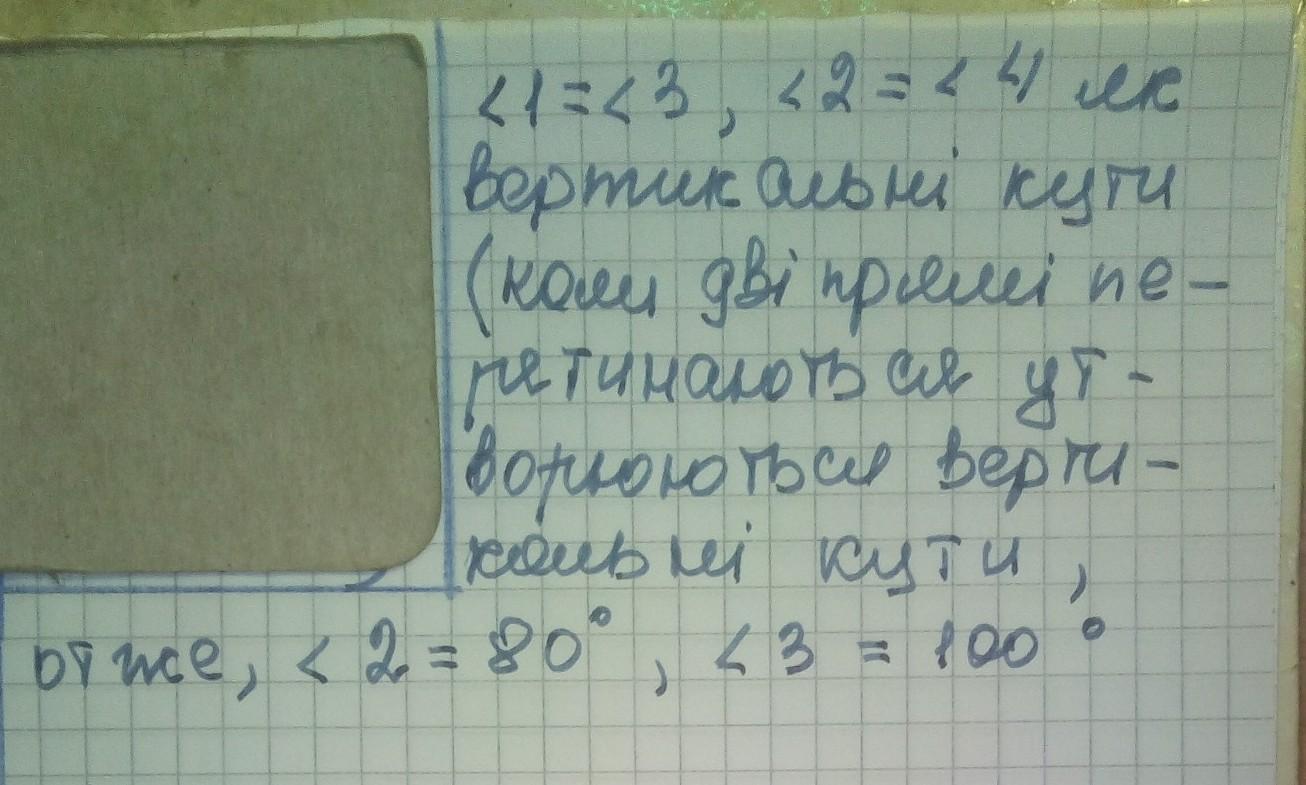 <1=<3, <2=<4 як
вертикальні кути
(коли дві прямі пе-
ретинаються ут-
ворюються верти-
кальні кути,
отже, <2=80°, <3=100°